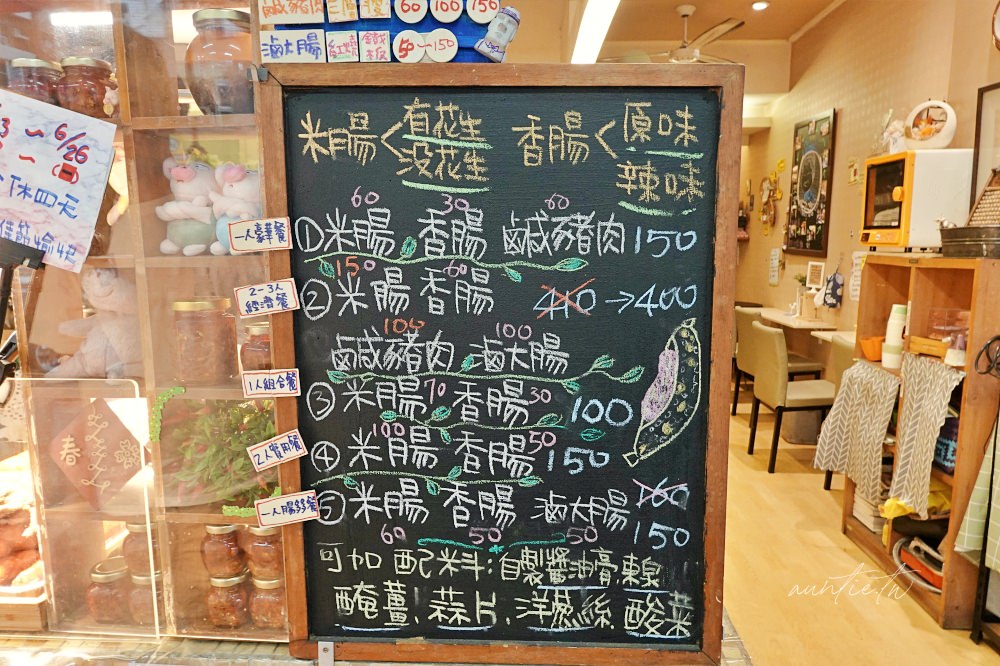 鹹豬肉 60 100 150
滷大腸 紅燒 鐵板 50~150
3~6/26
公休四天
佳節愉快
米腸<有花生 没花生
香腸<原味 辣味
一人豪華餐
60 30 60
①米腸 香腸 鹹豬肉 150
2-3人經濟餐
150 60
②米腸 香腸 410→400
100 100
鹹豬肉 滷大腸
1人組合餐
③米腸70 香腸30 100
2人實用餐
100 50
④米腸 香腸 150
一人腸多餐
⑤米腸 香腸 滷大腸 160 150
60 50 50
可加配料:自製醬油膏
醃薑、蒜片、洋蔥絲、酸菜
春
auntie.tw